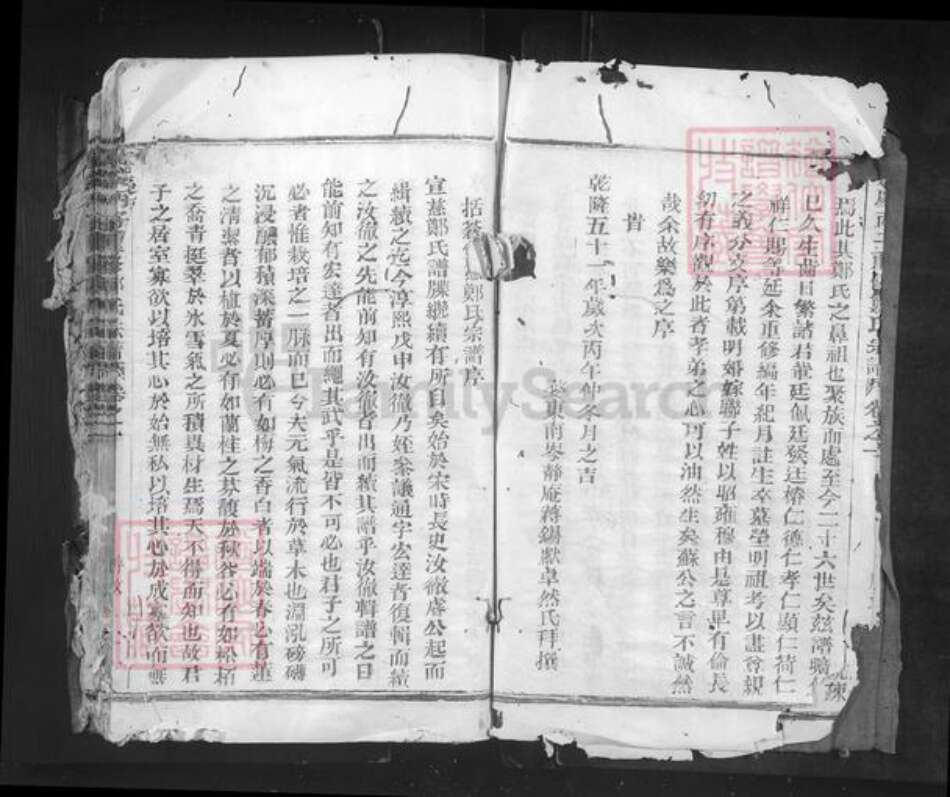 焉此其鄭氏之鼻祖也聚族而處至今二十六世矣茲譜
已久生齒日繁諸君 廷佩廷發廷椿仁德仁孝仁顯仁荷仁
祥仁賜等延余重修編年紀月註生卒墓瑩明祖考以盡尊親
之義分支序第載明婚嫁聯子姓以昭雍穆由是尊卑有倫長
幼有序觀於此者孝弟之心可以油然生矣蘇公之言不誠然
哉余故樂爲之序
 旹
乾隆五十一年歲次丙午仲冬月之吉
婺東南岑靜庵蔣錫獻卓然氏拜撰
括蒼 鄭氏宗譜序
宣慈鄭氏譜牒繼續有所自矣始於宋時長史汝徽虞公起而
緝續之迄今淳熙戊申汝徽乃姪 議通字宏達者復輯而續
之汝徽之先能前知有汝徽者出而續其譜乎汝徽輯譜之日
能前知有宏達者出而繩其武乎是皆不可必也君子之所可
必者惟栽培之一脈而已今夫元氣流行於草木也淵泓磅礴
沉浸醲郁積深蓄厚則必有如梅之香白者以端於春必有蓮
之清潔者以植於夏必有如蘭桂之芬馥於秋咎必有如松柏
之喬青挺翠於氷雪氣之所積異材生焉天不得而知也故君
子之居室寡欲以培其心於始無私以培其心於成寡欲而無
FamilySearch